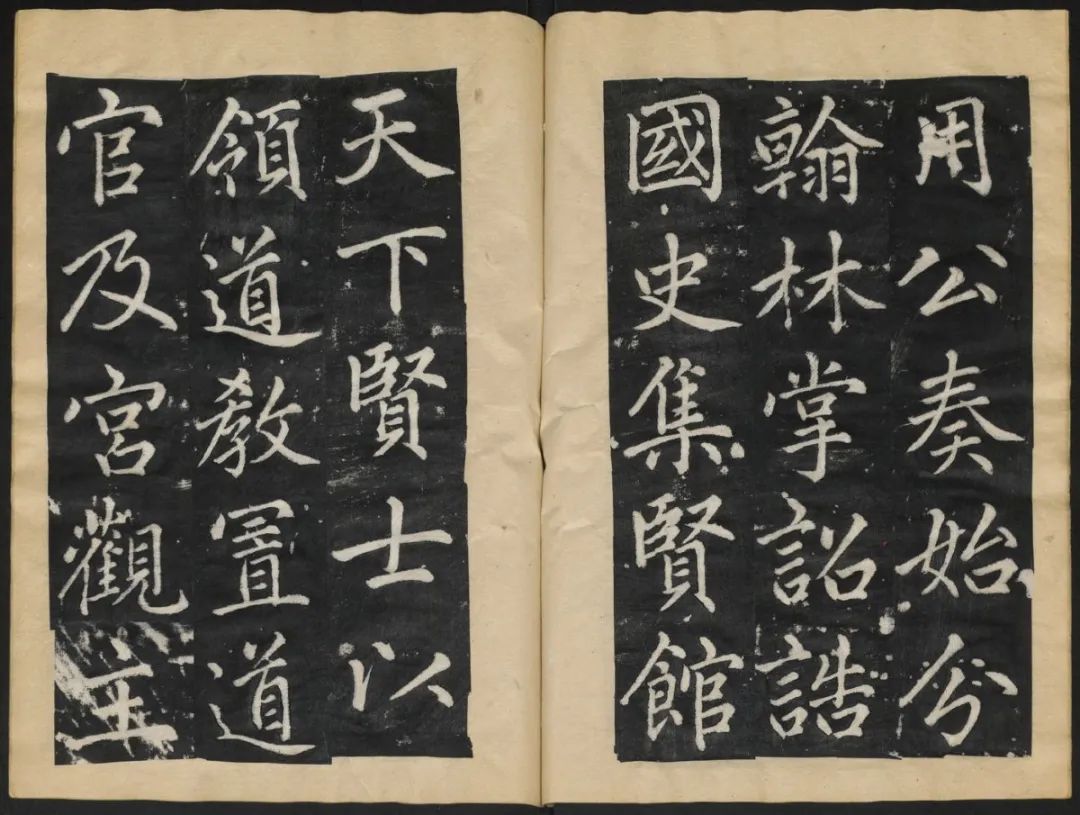 用公奏始分
翰林掌詔誥
國史集賢館
天下賢士以
領道教置道
官及宮觀主